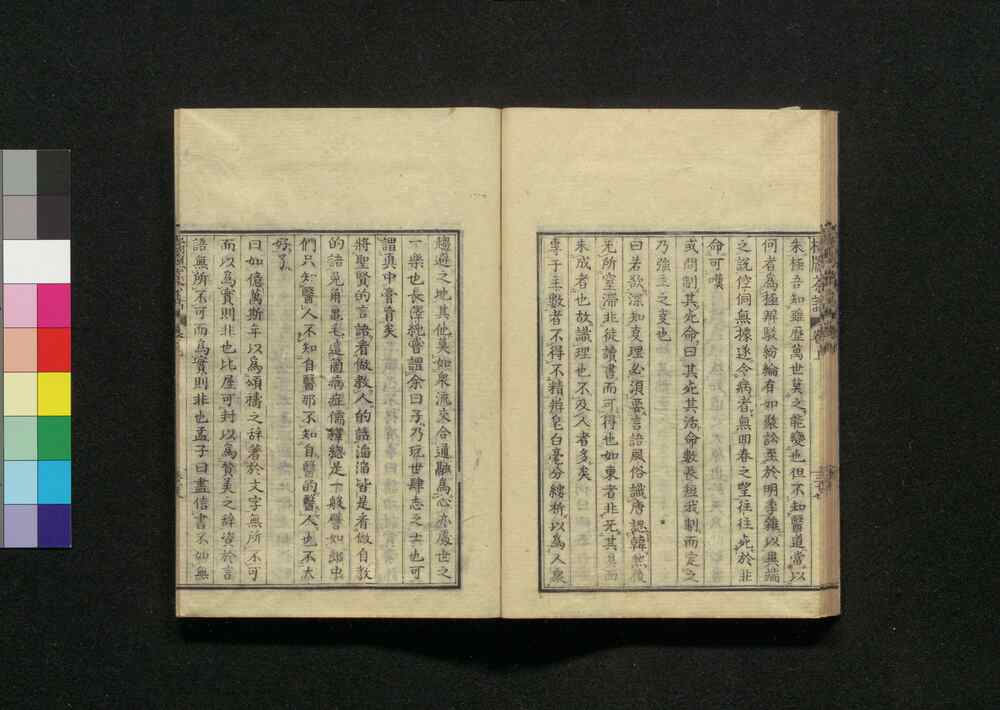 朱極吾知雖歷萬世莫之能變也但不知醫道當以
何者為極辨駁紛綸有如聚訟至於明季雜以無端
之說倥侗無據遂令病者無回春之望往往死於非
命可嘆
或問制其死命曰其死其活命數長短我制而定之
乃強主之支也
曰若欲深知支理必須要言語風俗識唐認韓然後
无所窒滯非徒讀書而可得也如東者非旡其
朱成者也故識理也不及人者多矣
專于主數者不得不精辨皂白毫分縷析以為人
趨避之地其他莫如衆流來合通融為心亦處世之
一樂也長澤純嘗謂余曰子乃玩世肆志之士也可
謂眞中膏肓矣
將聖賢的言語看做教人的話滔滔皆是看做自教
的語兎角龜毛這箇病症儒釋總是一般譬如郎中
們只知醫人不知自醫那不知自醫的醫人也不大
好了
曰如億萬斯年以為頌禱之辭著於文字無所不可
而以為實則非也比屋可封以為贊美之辭資於言
語無所不可而為實則非也孟子曰盡信書不如無